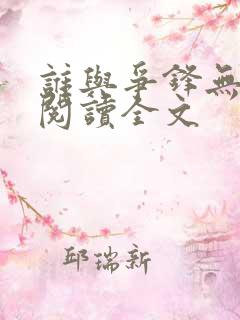 誰與爭鋒無
閱讀全文
邱瑞新